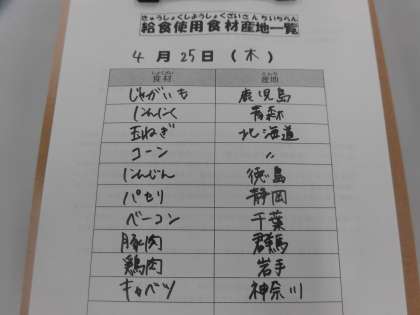 きゅうしょくしようしょくざいさんちいちらん
給食使用食材産地一覧
4月25日(木)
しょくざい さんち
食材 産地
じゃがいも 鹿児島
にんにく 青森
玉ねぎ 北海道
コーン 〃
にんじん 徳島
パセリ 静岡
ベーコン 千葉
豚肉 群馬
鶏肉 岩手
キャベツ 神奈川